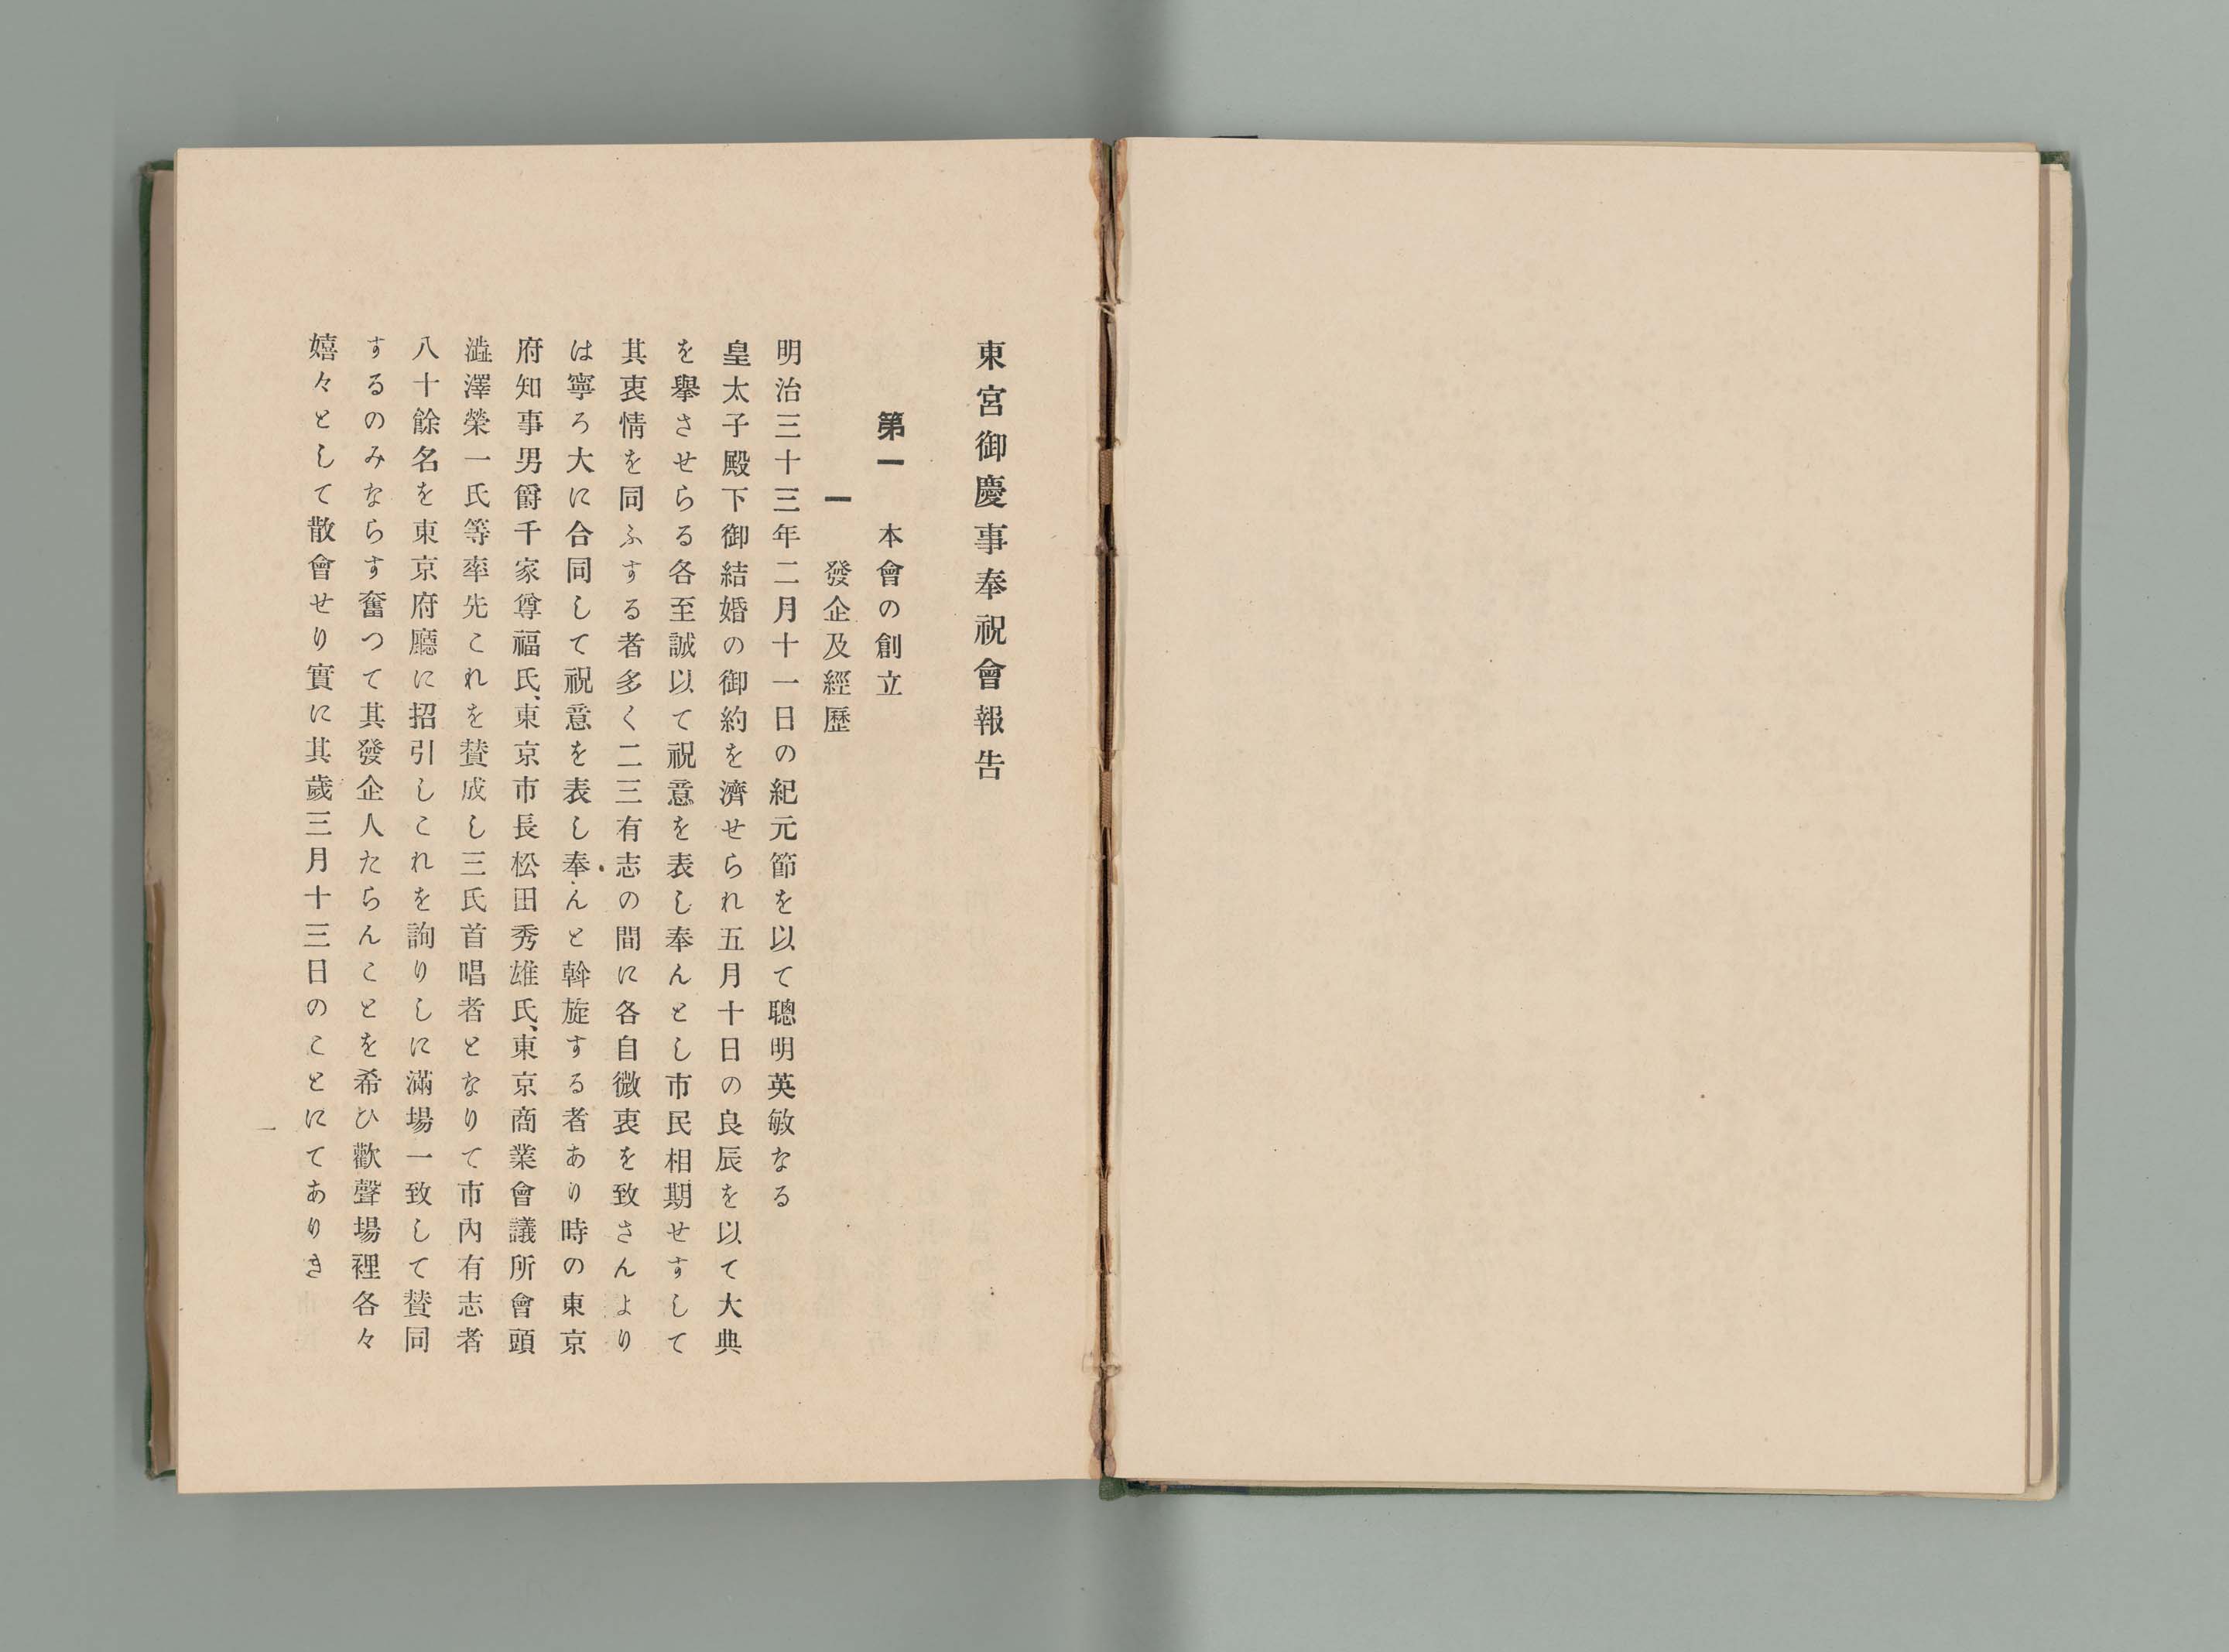 東宮御慶事奉祝會報告
第一　本會の創立
一　發企及經歷
明治三十三年二月十一日の紀元節を以て聰明英敏なる
皇太子殿下御結婚の御約を濟せられ五月十日の良辰を以て大典
を擧させらる各至誠以て祝意を表し奉んとし市民相期せすして
其衷情を同ふする者多く二三有志の間に各自微衷を致さんより
は寧ろ大に合同して祝意を表し奉んと斡旋する者あり時の東京
府知事男爵千家尊福氏、東京市長松田秀雄氏、東京商業會議所會頭
澁澤榮一氏等率先これを賛成し三氏首唱者となりて市內有志者
八十餘名を東京府廳に招引しこれを詢りしに滿場一致して賛同
するのみならす奮つて其發企人たらんことを希ひ歡聲場裡各々
嬉々として散會せり實に其歲三月十三日のことにてありき
一